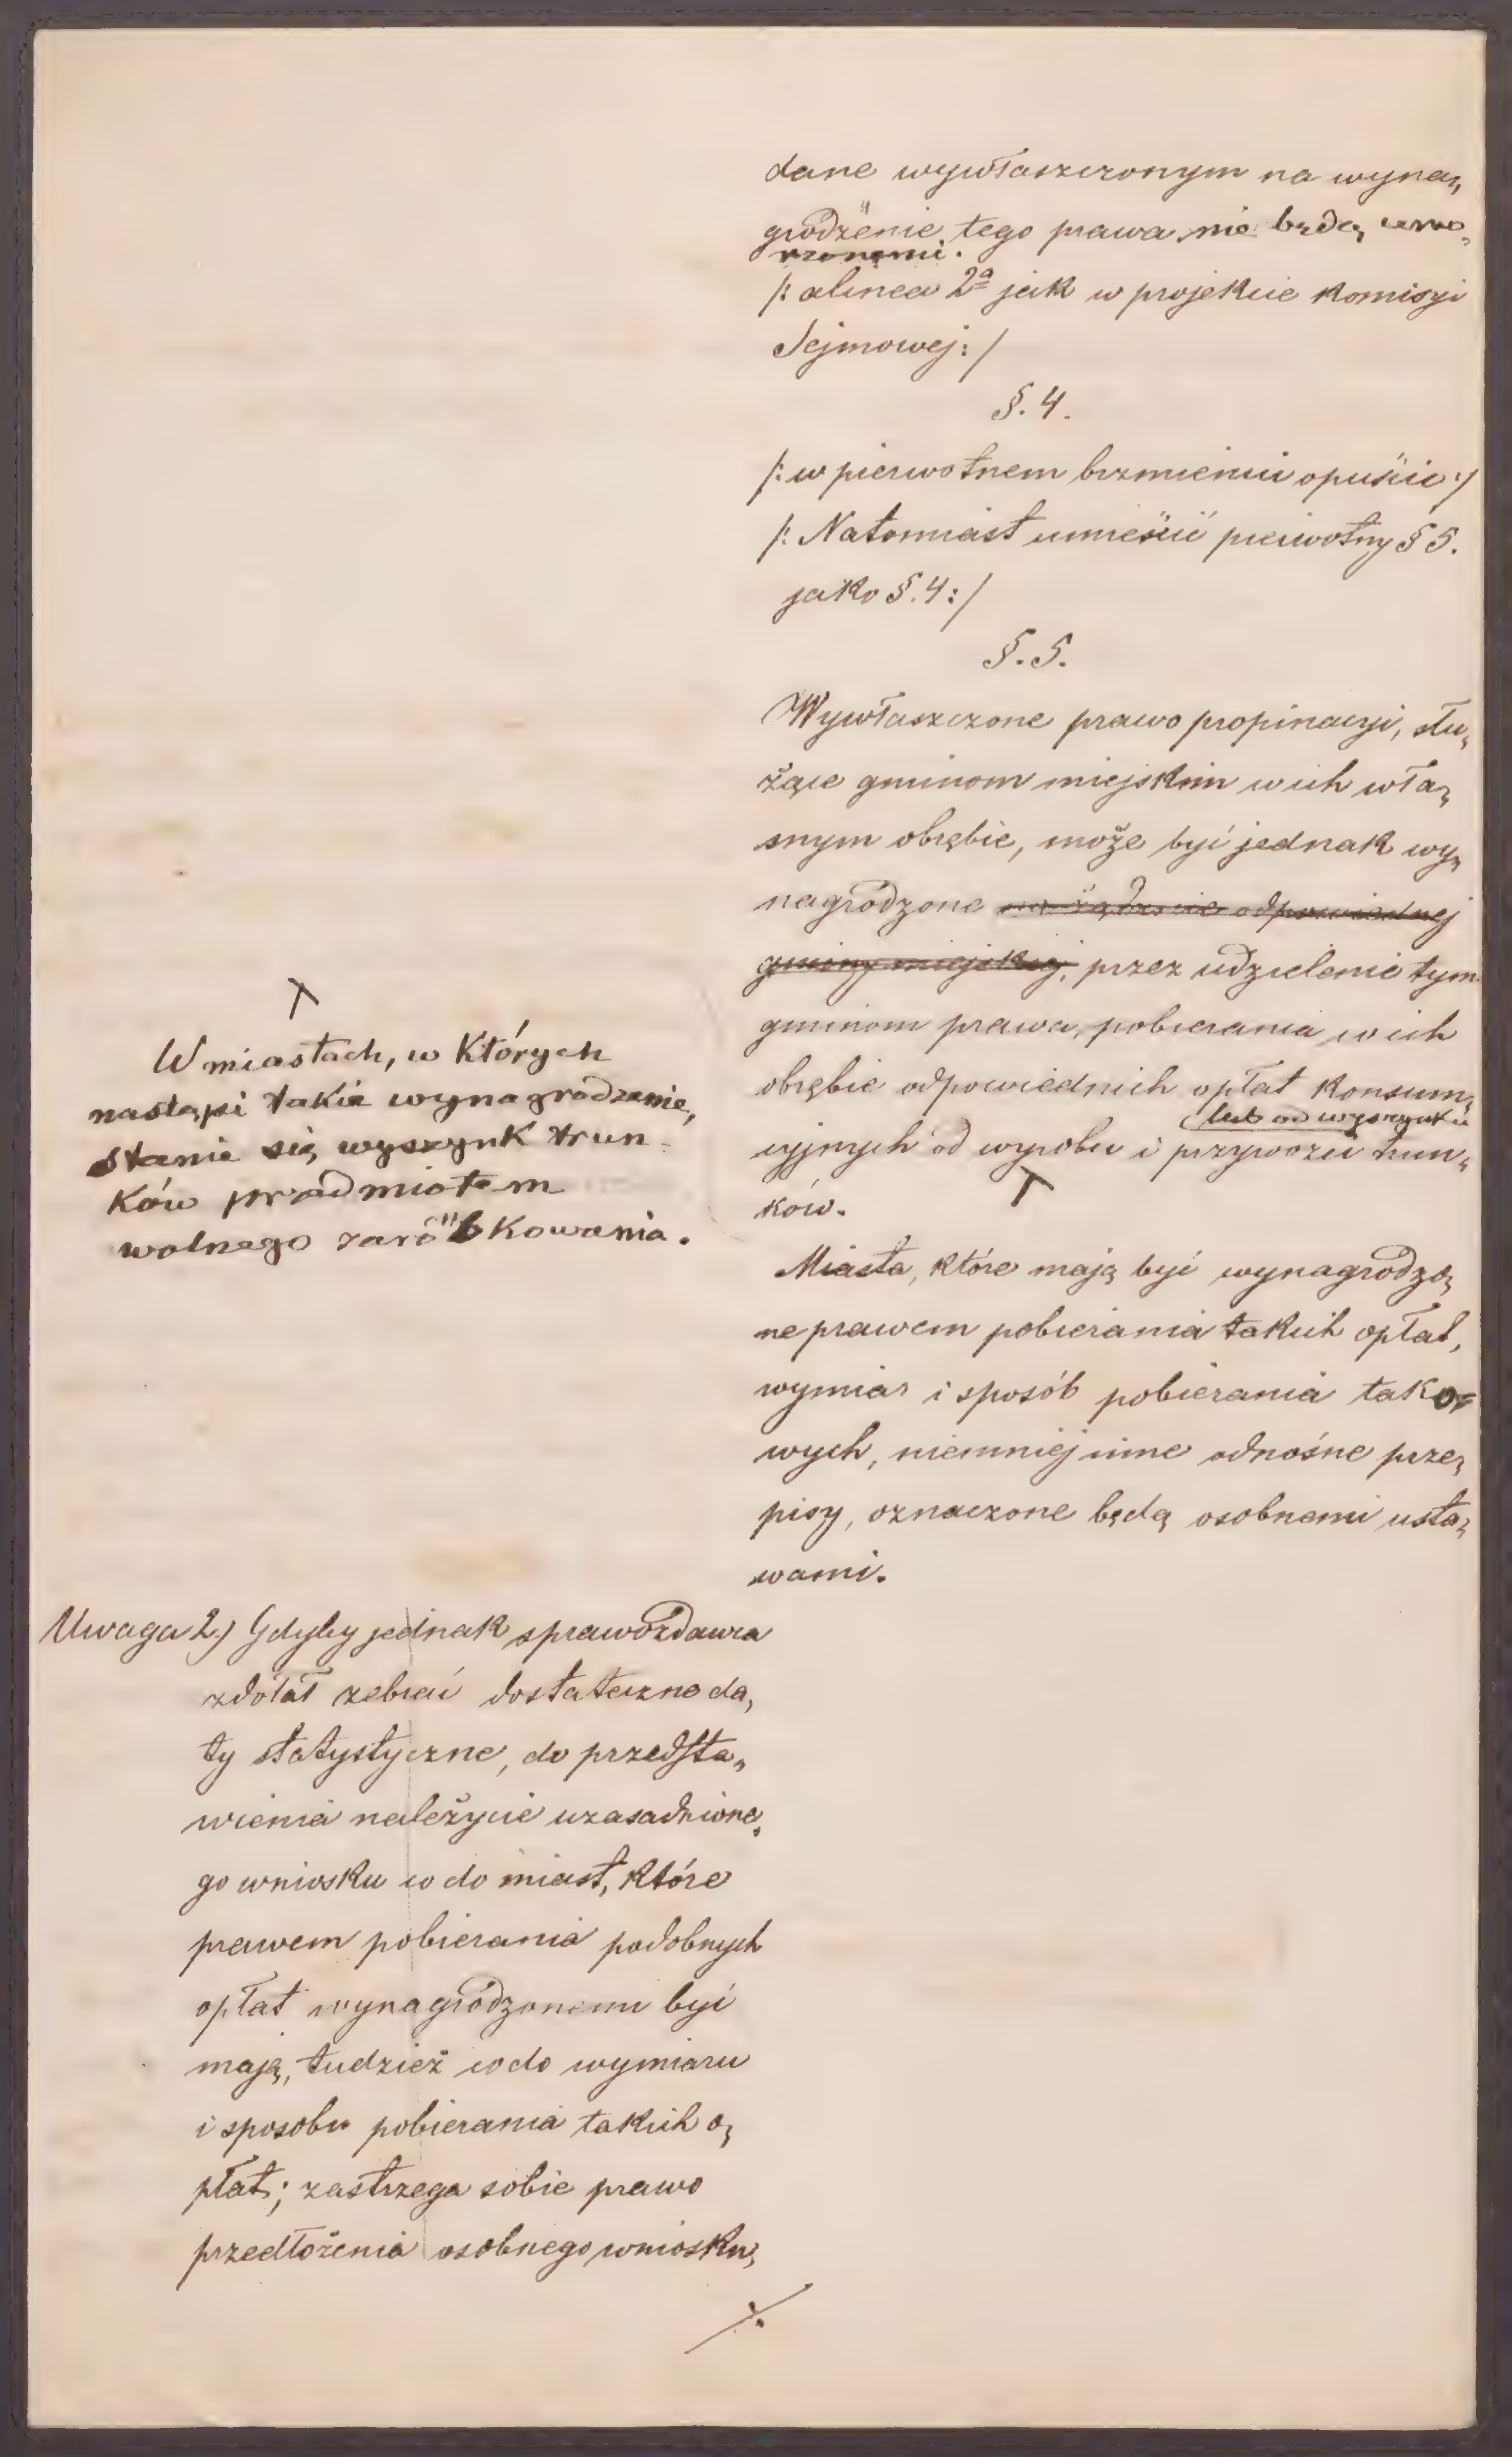 dane wywłaszczonym na wyna„
grodzenie tego prawa nie będą uwa„
rzanemi.
/: alinea 2ª jak w projekcie Komisyi
Sejmowej: /
§. 4.
/: w pierwotnem brzmieniu opuścić :/
/: Natomiast umieścić pierwotny § 5.
jako §. 4: /
§. 5.
Wywłaszczone prawo propinacyi, słu„
żące gminom miejskim w ich wła„
snym obrębie, może być jednak wy„
nagrodzone na żądanie odpowiedniej
gminy miejskiej, przez udzielenie tym
gminom prawa, pobierania w ich
obrębie odpowiednich opłat Konsum„
lub od wyszynku
cyjnych od wyrobu i przywozu trun„
ków.
Miasta, które mają być wynagrodzo„
ne prawem pobierania takich opłat,
wymiar i sposób pobierania tako„
wych, niemniej inne odnośne prze„
pisy, oznaczone będą osobnemi usta„
wami.
W miastach, w Których
nastąpi takie wynagrodzenie,
stanie się wyszynk trun-
Ków przedmiotem
wolnego zarobkowania.
Uwaga 2) Gdyby jednak sprawozdawca
zdołał zebrać dostateczne da„
ty statystyczne, do przedsta„
wienia należycie uzasadnione„
go wniosku co do miast, które
prawem pobierania podobnych
opłat wynagrodzonemi być
mają, tudzież co do wymiaru
i sposobu pobierania takich o„
płat; zastrzega sobie prawo
przedłożenia osobnego wniosku,
./.